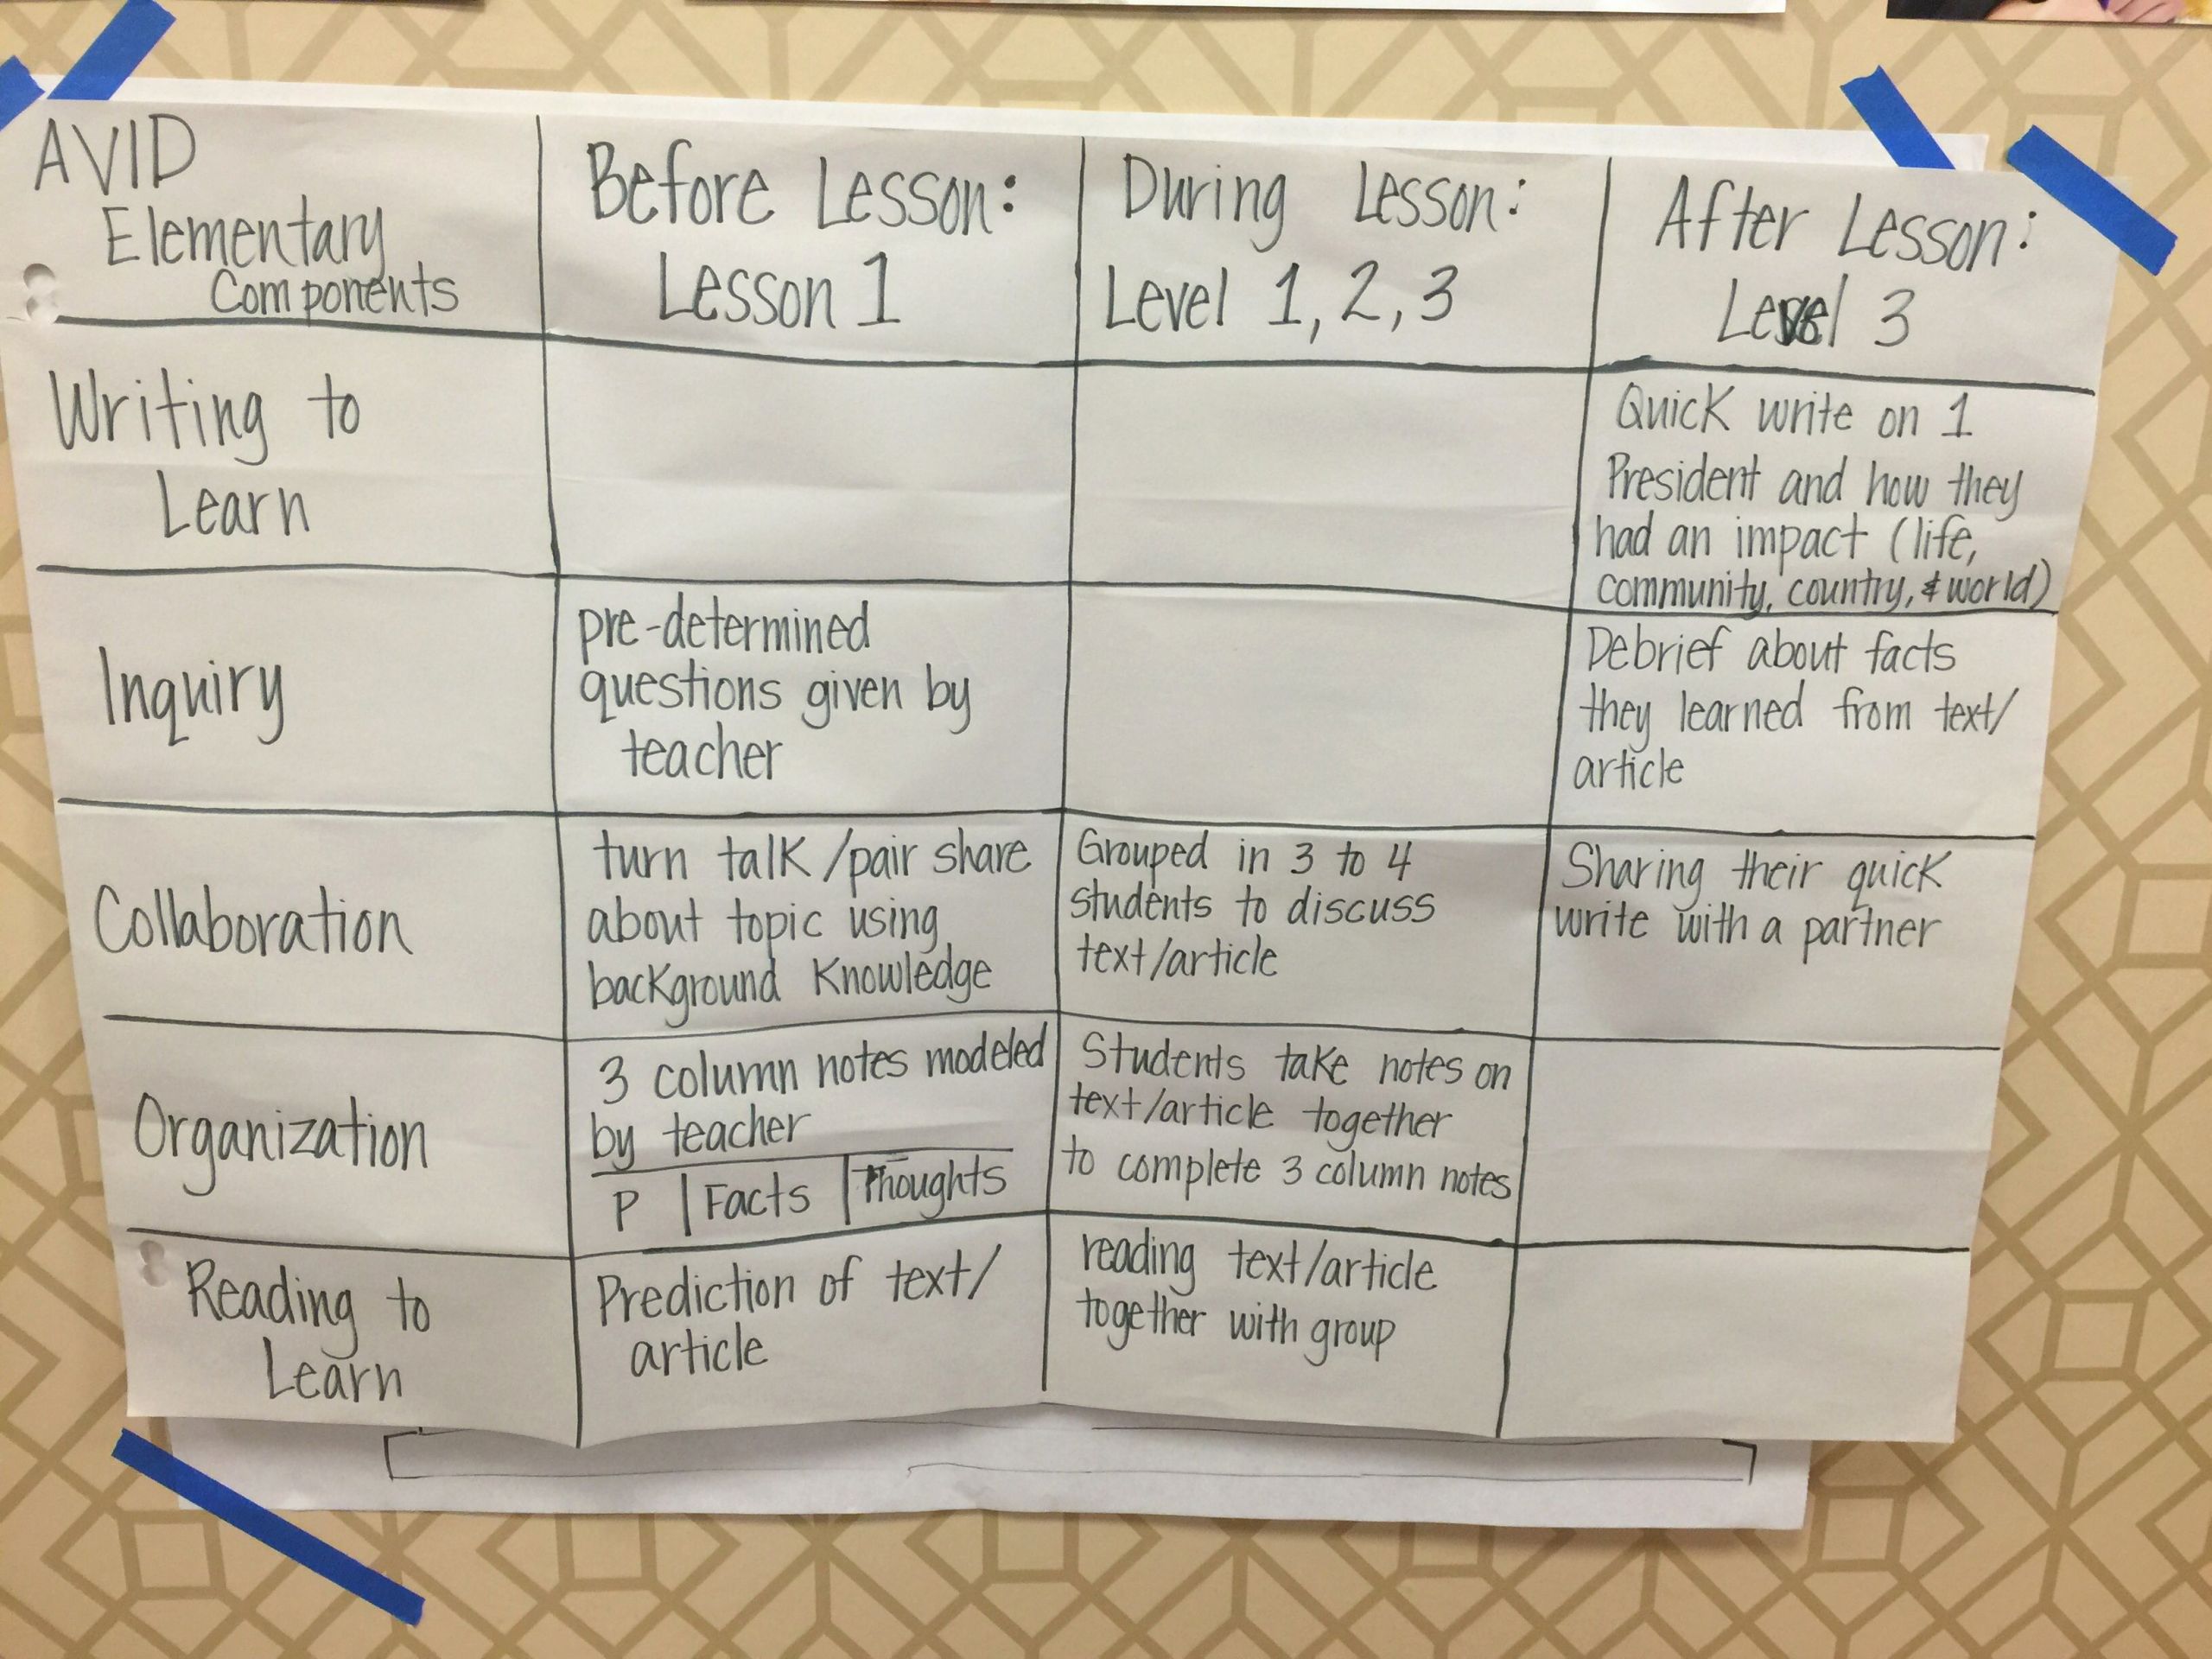 AVID
Elementary
Components
Before Lesson:
Lesson 1
During Lesson:
Level 1, 2, 3
After Lesson:
Level 3
Writing to
Learn
Quick write on 1
President and how they
had an impact (life,
community, country, & world)
Inquiry
pre-determined
questions given by
teacher
Debrief about facts
they learned from text/
article
Collaboration
turn talk/pair share
about topic using
background knowledge
Grouped in 3 to 4
students to discuss
text/article
Sharing their quick
write with a partner
Organization
3 column notes modeled
by teacher
P | Facts | Thoughts
Students take notes on
text/article together
to complete 3 column notes
Reading to
Learn
Prediction of text/
article
reading text/article
together with group